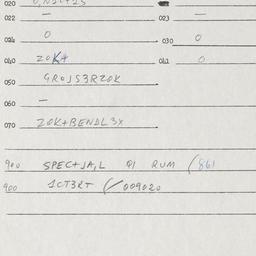 020
022 — 023 —
024 0 030 0
040 20K4 041 0
050 GROJS3RZOK
060 —
070 ZOK+BENDL3X
900 SPEC+JA,L QI RUM (861
900 1CT3RT (/009020